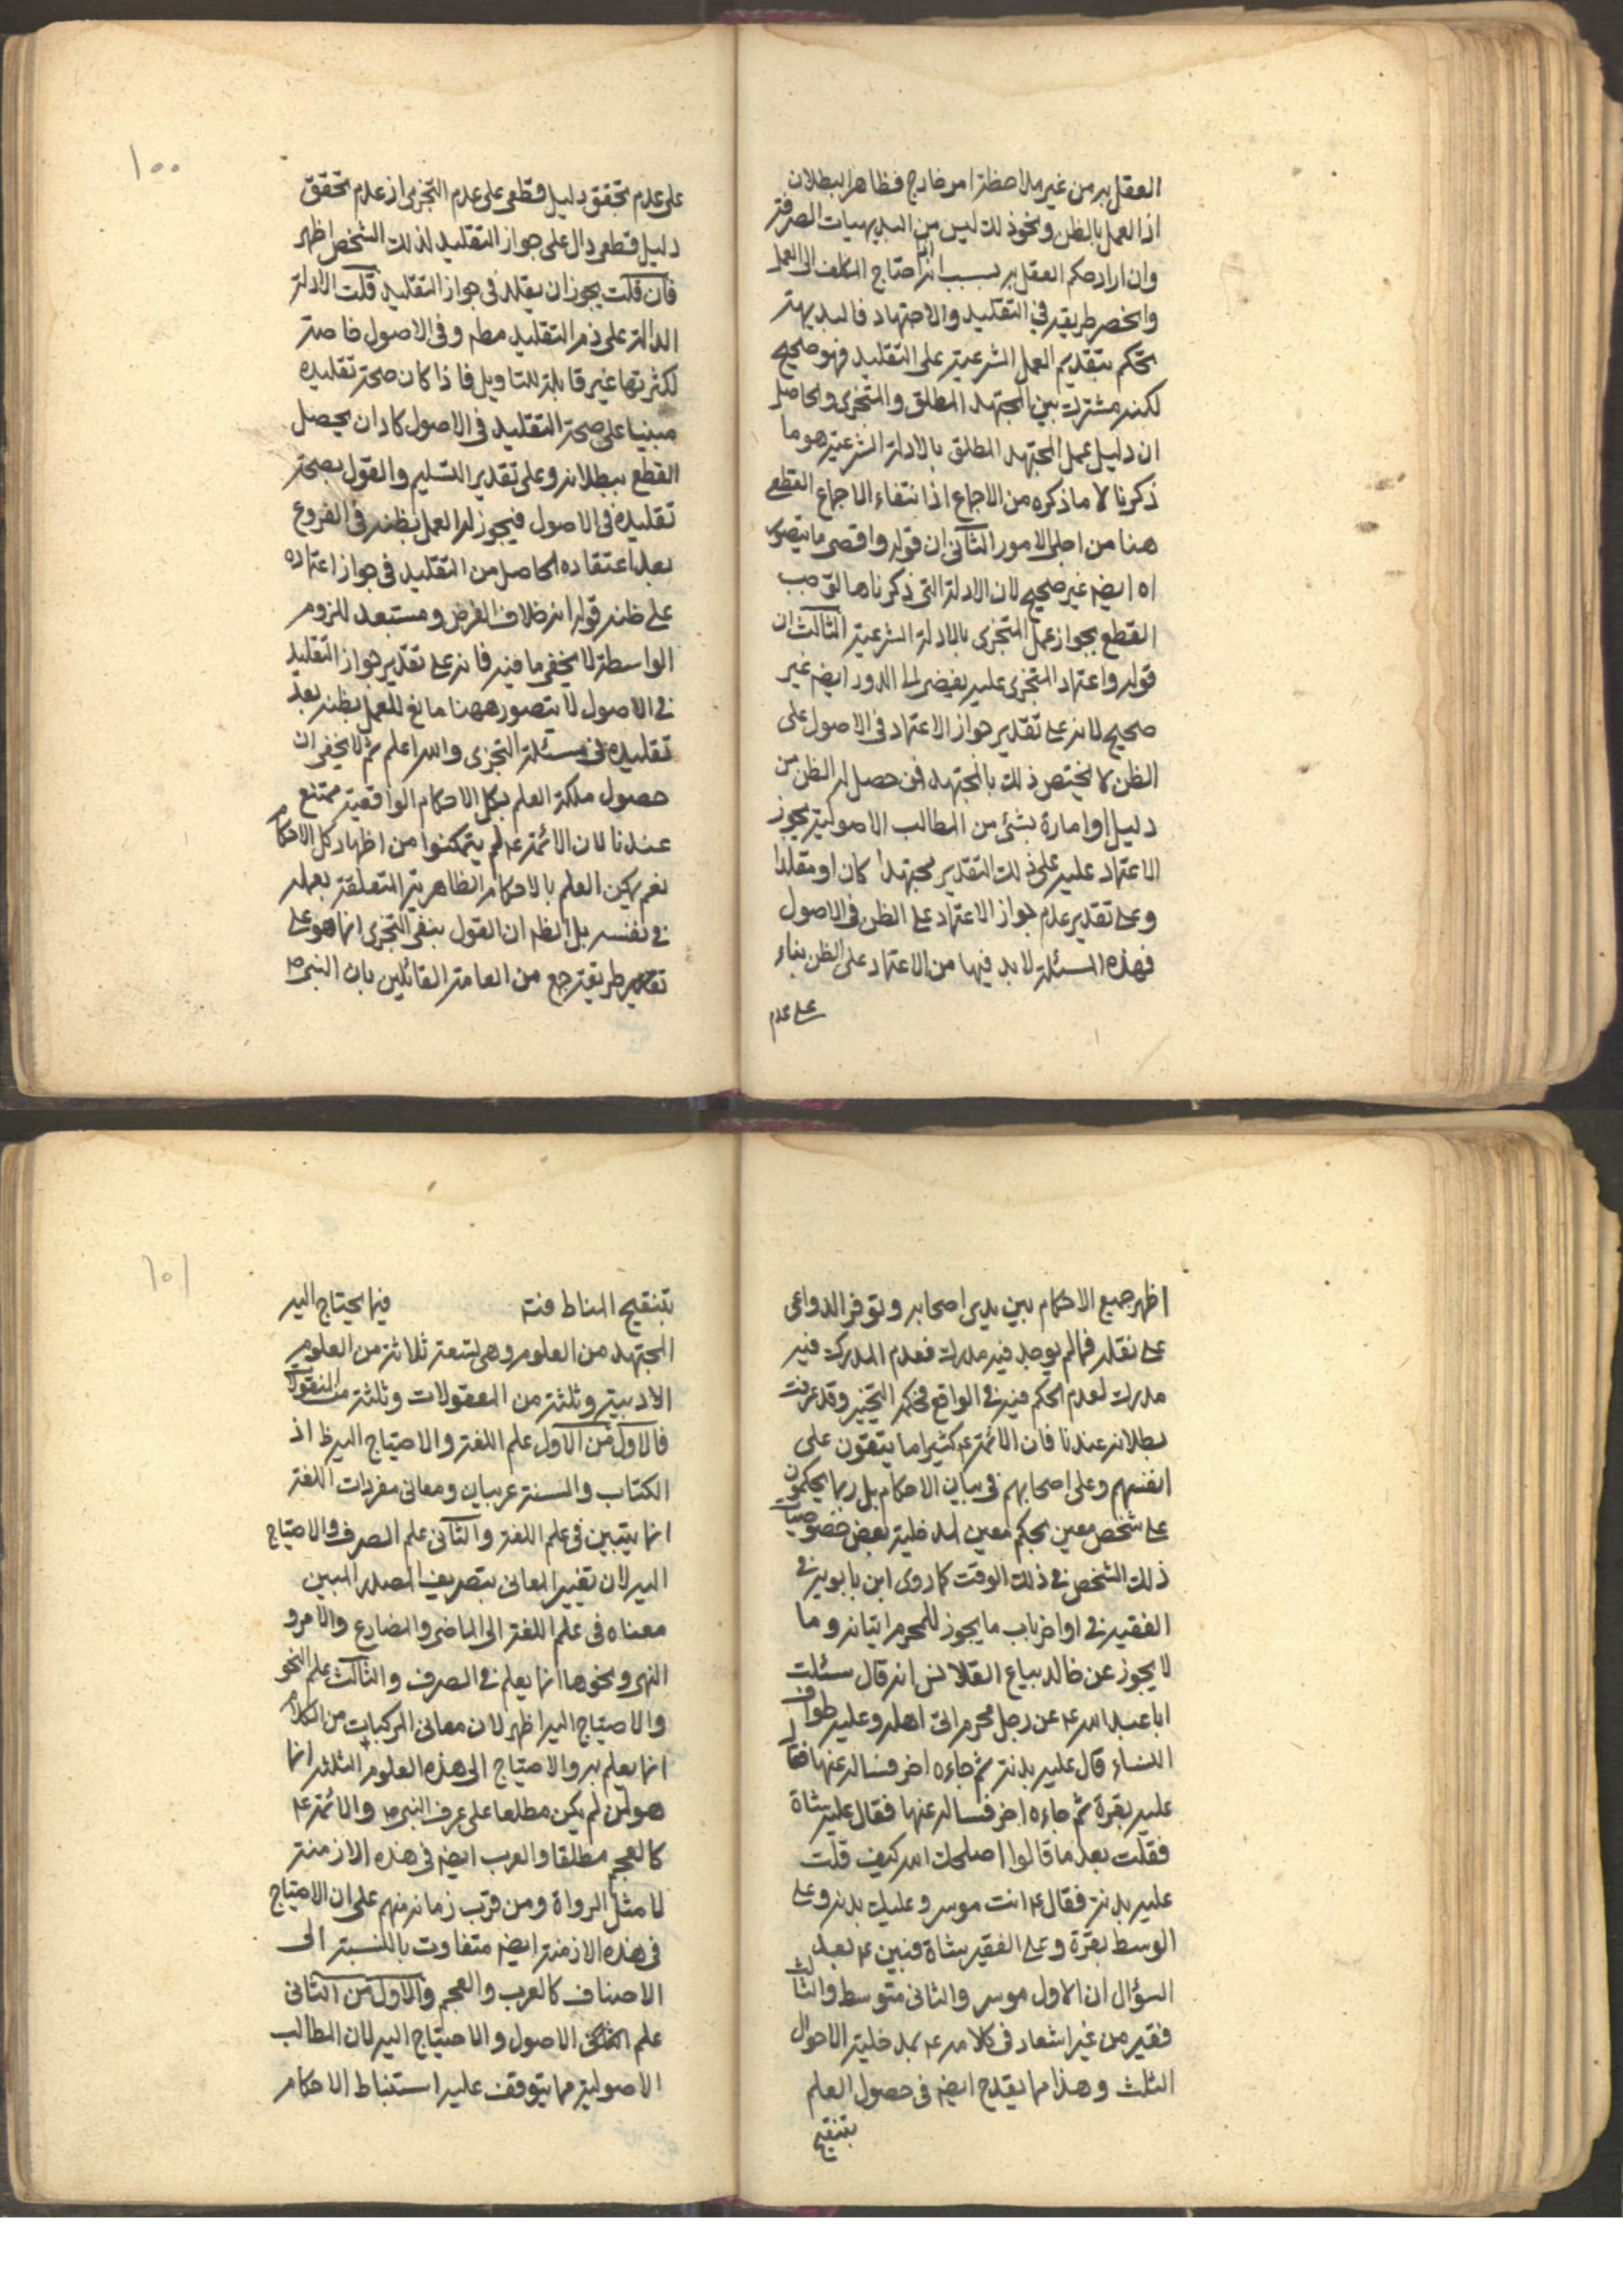 العقل به من غير ملاحظة امر خارج فظاهر البطلان
اذ العمل بالظن ونحو ذلك ليس من البديهيات الصرفة
وان اراد حكم العقل به بسبب انه احتاج المكلف الى العمل
وانحصر طريقه في التقليد والاجتهاد فالبديهة
تحكم بتقديم العمل الشرعية على التقليد فهو صحيح
لكنه مشترك بين المجتهد المطلق والمتجزى والحاصل
ان دليل عمل المجتهد المطلق بالادلة الشرعية هو ما
ذكرنا لا ما ذكره من الاجماع اذ انتفاء الاجماع القطعى
هنا من اجلى الامور الثانى ان قوله واقصى ما يتصور
اه ايضه غير صحيح لان الادلة التى ذكرناها توجب
القطع بجواز عمل المتجزى بالادلة الشرعية الثالث ان
قوله واعتماد المتجزى عليه يفضى الى الدور ايضه غير
صحيح لانه على تقدير جواز الاعتماد فى الاصول على
الظن لا يختص ذلك بالمجتهد فمن حصل له الظن من
دليل او امارة بشئ من المطالب الاصولية يجوز
الاعتماد عليه على ذلك التقدير مجتهدا كان او مقلدا
وعلى تقدير عدم جواز الاعتماد على الظن فى الاصول
فهذه المسئلة لا بد فيها من الاعتماد على الظن بناء
على عدم
١٠٠
على عدم تحقق دليل قطعى على عدم التجزى از عدم تحقق
دليل قطعى دال على جواز التقليد لذلك الشخص اظهر
فان قلت يجوز ان يقلد فى جواز التقليد قلت الادلة
الدالة على ذم التقليد مطه وفى الاصول خاصة
لكثرتها غير قابلة للتاويل فاذا كان صحة تقليده
مبنيا على صحة التقليد فى الاصول كاد ان يحصل
القطع ببطلانه وعلى تقدير التسليم والقول بصحة
تقليده فى الاصول فيجوز له العمل بظنه فى الفروع
بعد اعتقاده الحاصل من التقليد فى جواز اعتماده
على ظنه قوله انه خلاف الفرض ومستبعد للزوم
الواسطة لا يخفى ما فيه فانه على تقدير جواز التقليد
فى الاصول لا يتصور ههنا مانع للعمل بظنه بعد
تقليده فى مسئلة التجزى والله اعلم ثم لا يخفى ان
حصول ملكة العلم بكل الاحكام الواقعية ممتنع
عندنا لان الائمة ع لم يتمكنوا من اظهار كل الاحكام
نعم يمكن العلم بالاحكام الظاهرية المتعلقة بعمله
فى نفسه بل الظه ان القول بنفى التجزى انما هو على
طريقة جمع من العامة القائلين بان النبى ص
اظهر جميع الاحكام بين يدى اصحابه وتوفر الدواعى
على نقله فما لم يوجد فيه مدرك فعدم المدرك فيه
مدرك لعدم الحكم فيه فى الواقع فحكمه التخيير وقد عرفت
بطلانه عندنا فان الائمة ع كثيرا ما يتقون على
انفسهم وعلى اصحابهم فى بيان الاحكام بل ربما يحكمون
على شخص معين بحكم معين لمدخلية بعض خصوصيات
ذلك الشخص فى ذلك الوقت كما روى ابن بابويه فى
الفقيه فى اواخر باب ما يجوز للمحرم اتيانه وما
لا يجوز عن خالد بياع القلانس انه قال سئلت
ابا عبد الله ع عن رجل محرم اتى اهله وعليه طواف
النساء قال عليه بدنة ثم جاءه اخر فسأله عنها فقال
عليه بقرة ثم جاءه اخر فساله عنها فقال عليه شاة
فقلت بعد ما قالوا اصلحك الله كيف قلت
عليه بدنة فقال ع انت موسر وعليك بدنه وعلى
الوسط بقرة وعلى الفقير شاة فبين ع بعد
السؤال ان الاول موسر والثانى متوسط والثالث
فقير من غير اشعار فى كلامه ع بمدخلية الاحوال
الثلث وهذا مما يقدح ايضه فى حصول العلم
بتنقيح
١٠١
بتنقيح المناط فته فيما يحتاج اليه
المجتهد من العلوم وهى تسعة ثلاثة من العلوم
الادبية وثلثة من المعقولات وثلثة من المنقولات
فالاول من الاول علم اللغة والاحتياج اليه ظ اذ
الكتاب والسنة عربيان ومعانى مفردات اللغة
انما يتبين فى علم اللغة والثانى علم الصرف والاحتياج
اليه لان تغيير المعانى بتصريف المصدر المبين
معناه فى علم اللغة الى الماضى والمضارع والامر و
النهى ونحوها انما يعلم فى الصرف والثالث علم النحو
والاحتياج اليه اظهر لان معانى المركبات من الكلام
انما يعلم به والاحتياج الى هذه العلوم الثلثة انما
هو لمن لم يكن مطلعا على عرف النبى ص والائمة ع
كالعجم مطلقا والعرب ايضه فى هذه الازمنة
لا مثل الرواة ومن قرب زمانه منهم على ان الاحتياج
فى هذه الازمنة ايضه متفاوت بالنسبة الى
الاصناف كالعرب والعجم والاول من الثانى
علم الاصول والاحتياج اليه لان المطالب
الاصولية مما يتوقف عليه استنباط الاحكام